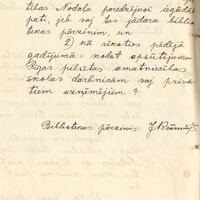 tības Nodaļa paredzējusi iegādāt
pat, jeb vai tas jādara biblio-
tekas pārzinim, un
2) kā rīkoties pēdējā
gadījumā: nodot apsūtījumu
Rīgas pilsētas amatniecības
skolas darbnīcām vai priva-
tiem uzņēmējiem?
Bibliotekas pārzinis: